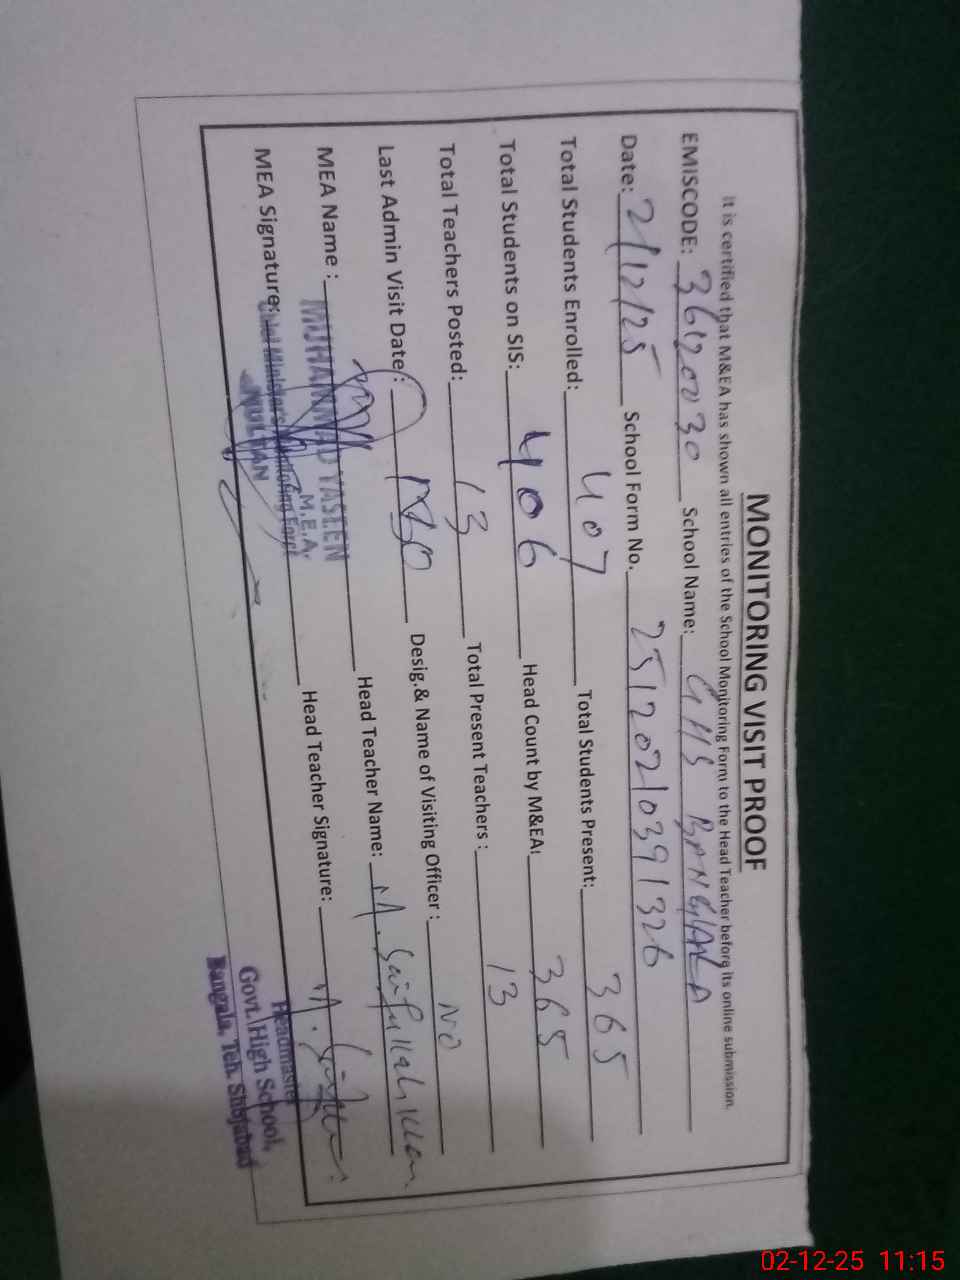 MONITORING VISIT PROOF
It is certified that M&EA has shown all entries of the School Monitoring Form to the Head Teacher before its online submission.
EMISCODE: 36120030 School Name: GHS BANGALA
Date: 2/12/25 School Form No. 25120210391326
Total Students Enrolled: 407 Total Students Present: 365
Total Students on SIS: 406 Head Count by M&EA: 365
Total Teachers Posted: 13 Total Present Teachers : 13
Last Admin Visit Date: NO Desig.& Name of Visiting Officer : NO
MEA Name : MUHAMMAD YASEEN Head Teacher Name: M. Saifullah Khan
M.E.A.
MEA Signature: Chief Minister's Monitoring Force Head Teacher Signature:
MULTAN
Headmaster
Govt. High School,
Bangala, Teh. Shbjabad
02-12-25 11:15